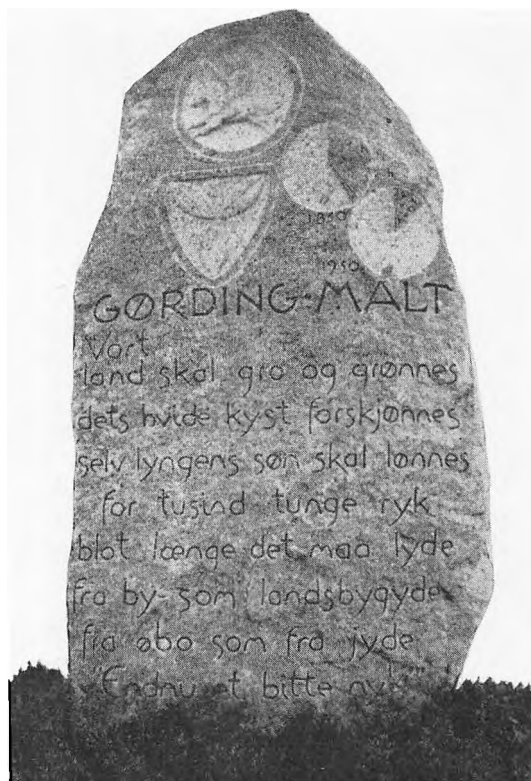 1850
1950
GØRDING-MALT
Vort
land skal gro og grønnes
dets hvide kyst forskjønnes
selv lyngens søn skal lønnes
for tusind tunge ryk
blot længe det maa lyde
fra by- som landsbygyde
fra øbo som fra jyde
"Endnu et bitte nyk"